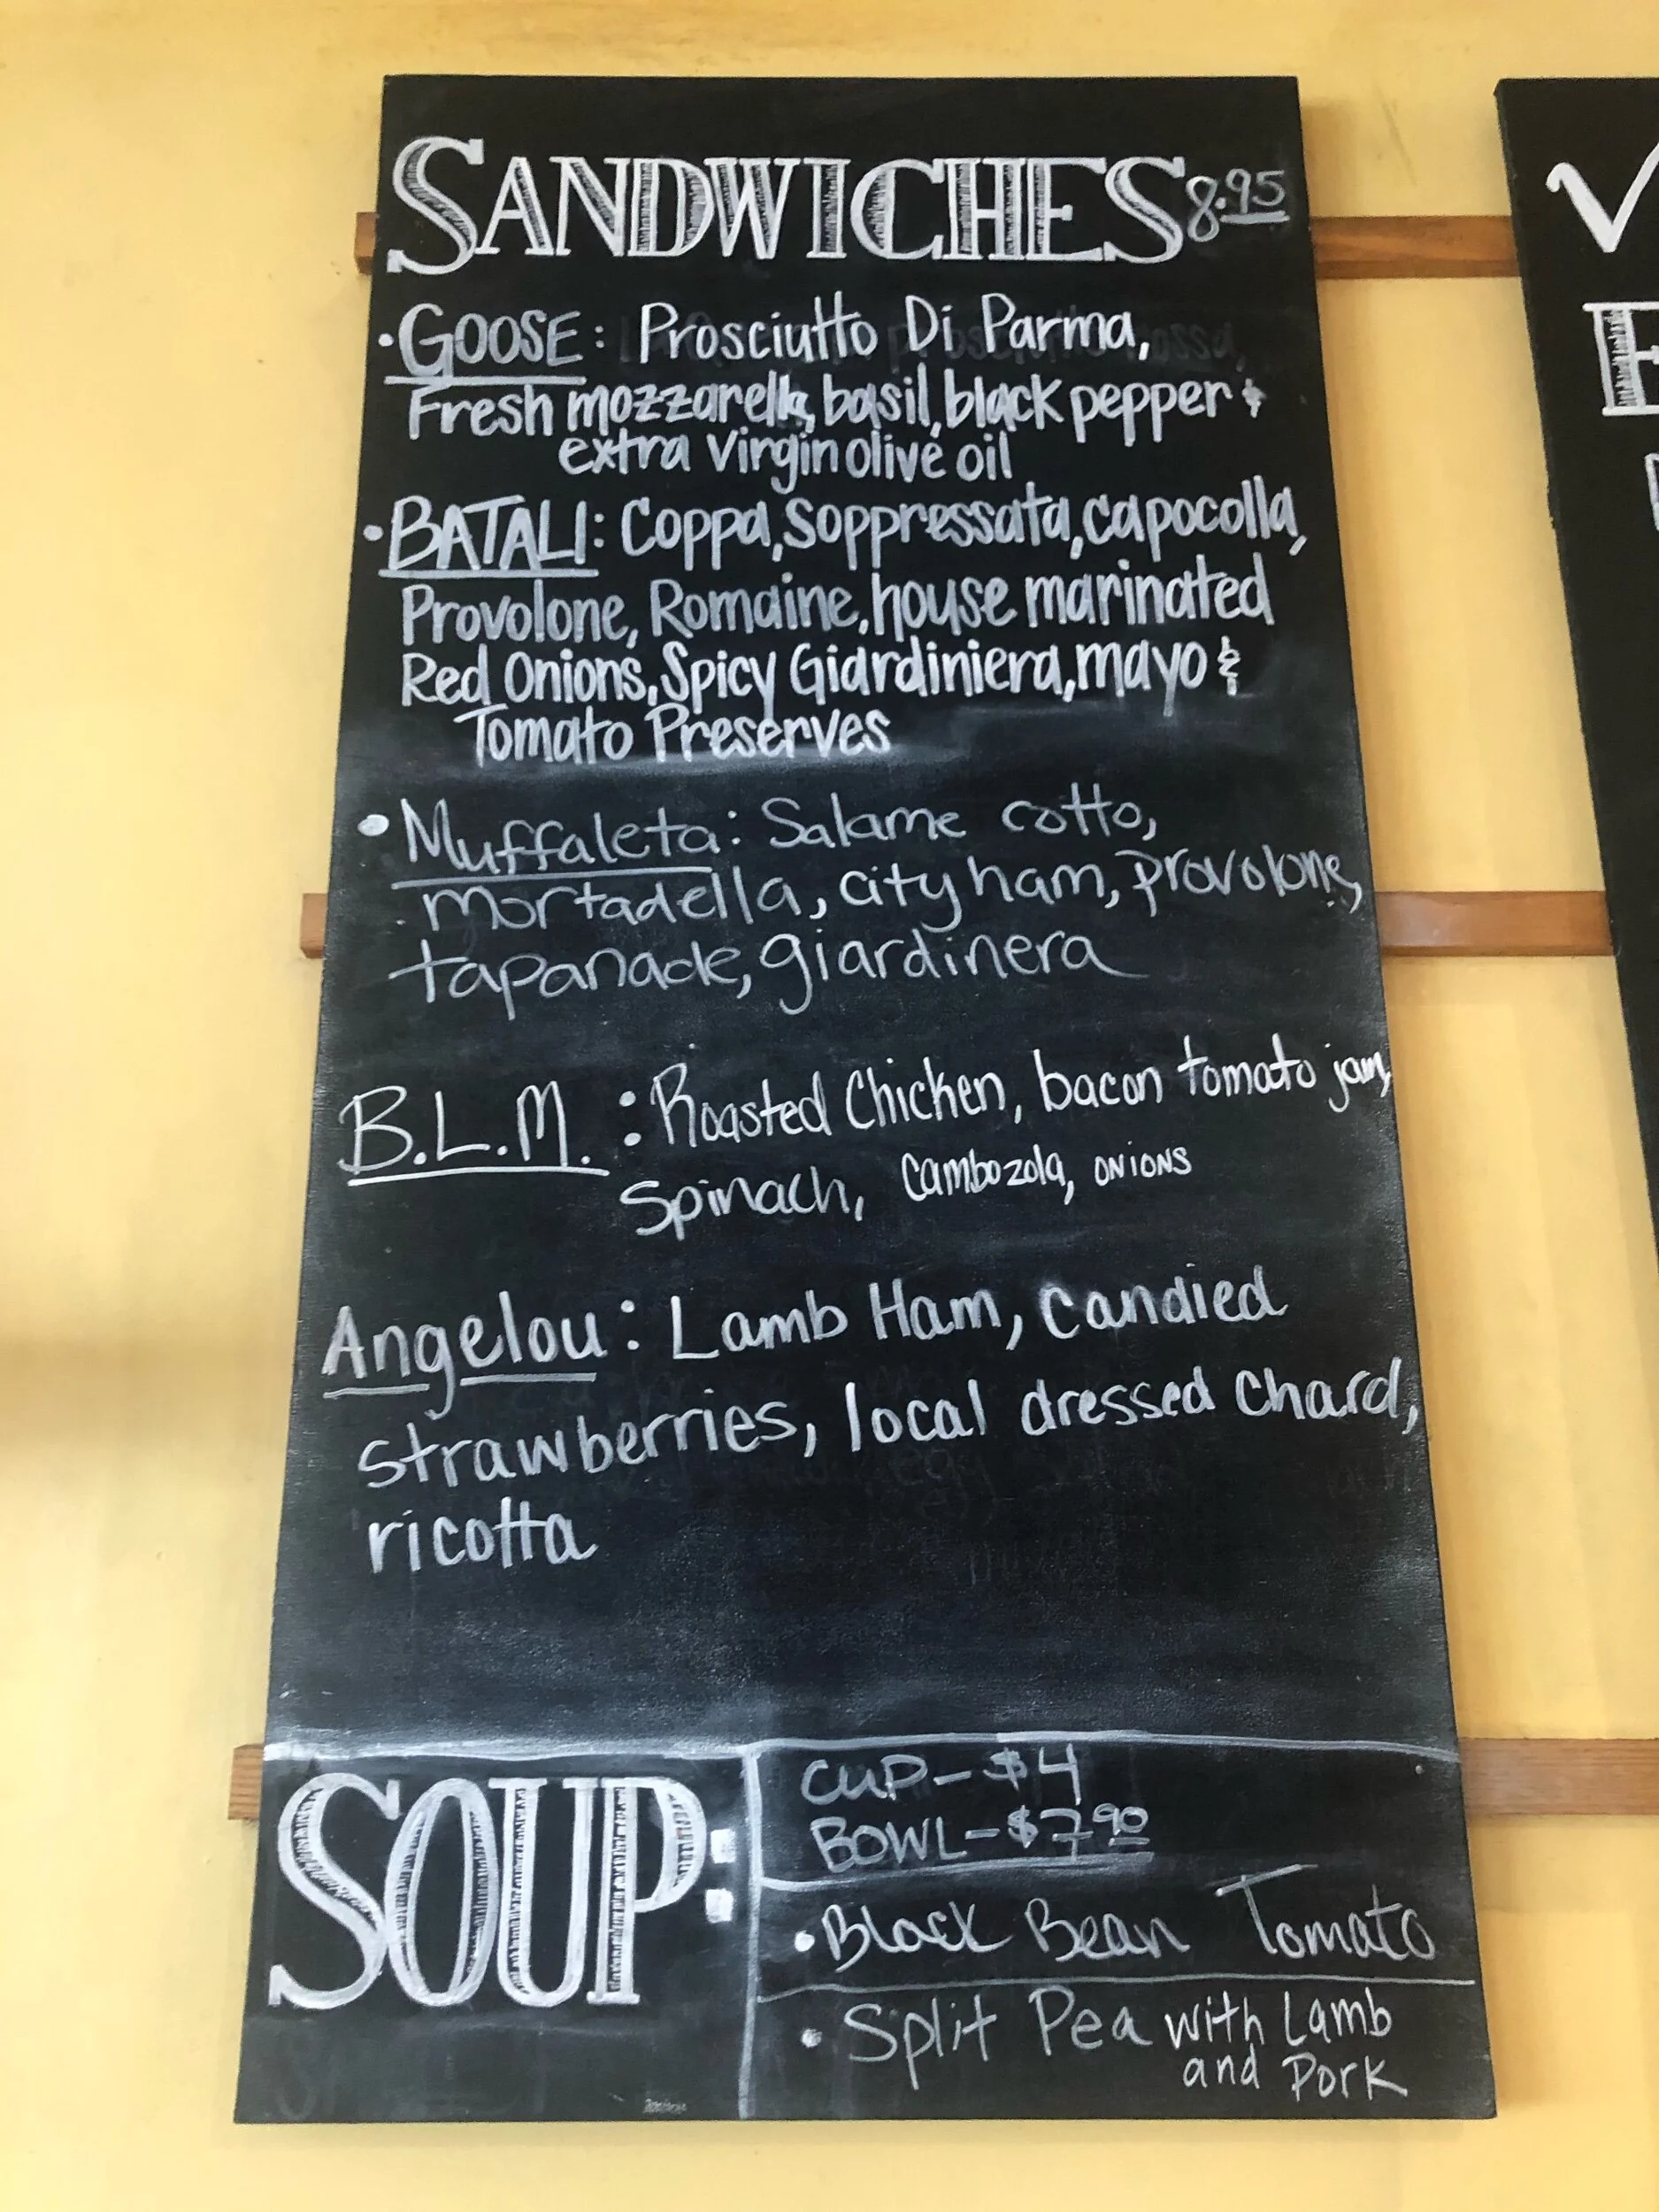 SANDWICHES 8.95
• GOOSE: Prosciutto Di Parma,
Fresh mozzarella, basil, black pepper &
extra virgin olive oil
• BATALI: Coppa, Soppressata, capocolla,
Provolone, Romaine, house marinated
Red Onions, Spicy Giardiniera, mayo &
Tomato Preserves
• Muffaleta: Salame cotto,
mortadella, city ham, provolone,
tapanade, giardinera
B.L.M.: Roasted Chicken, bacon tomato jam,
Spinach, Cambozola, onions
Angelou: Lamb Ham, candied
strawberries, local dressed chard,
ricotta
SOUP:
CUP - $4
BOWL - $7.90
• Black Bean Tomato
• Split Pea with Lamb
and Pork